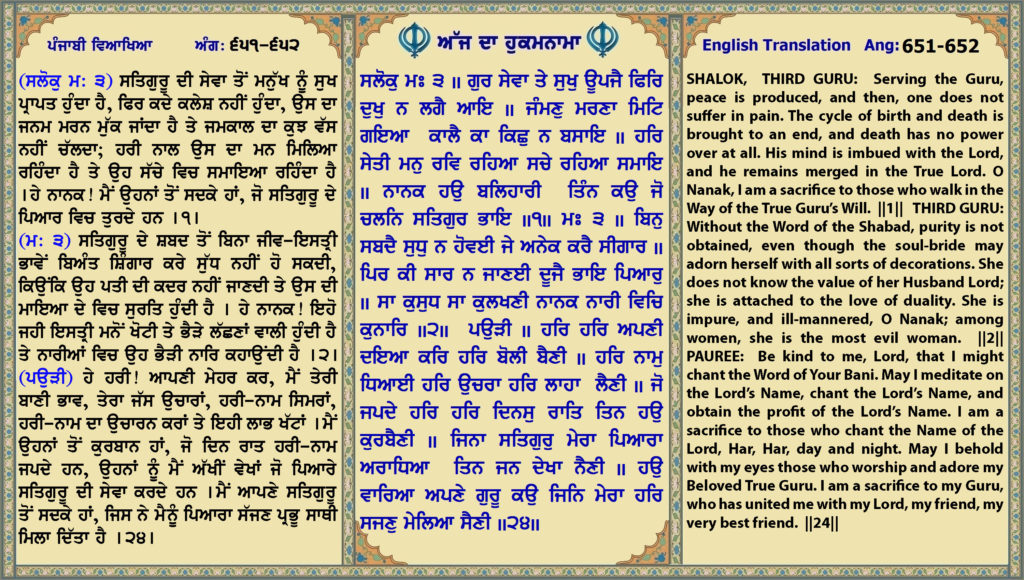 ਪੰਜਾਬੀ ਵਿਆਖਿਆ ਅੰਗ: ੬੫੧-੬੫੨
(ਸਲੋਕੁ ਮ: ੩) ਸਤਿਗੁਰੂ ਦੀ ਸੇਵਾ ਤੋਂ ਮਨੁੱਖ ਨੂੰ ਸੁਖ
ਪ੍ਰਾਪਤ ਹੁੰਦਾ ਹੈ, ਫਿਰ ਕਦੇ ਕਲੇਸ਼ ਨਹੀਂ ਹੁੰਦਾ, ਉਸ ਦਾ
ਜਨਮ ਮਰਨ ਮੁੱਕ ਜਾਂਦਾ ਹੈ ਤੇ ਜਮਕਾਲ ਦਾ ਕੁਝ ਵੱਸ
ਨਹੀਂ ਚੱਲਦਾ; ਹਰੀ ਨਾਲ ਉਸ ਦਾ ਮਨ ਮਿਲਿਆ
ਰਹਿੰਦਾ ਹੈ ਤੇ ਉਹ ਸੱਚੇ ਵਿਚ ਸਮਾਇਆ ਰਹਿੰਦਾ ਹੈ
।ਹੇ ਨਾਨਕ! ਮੈਂ ਉਹਨਾਂ ਤੋਂ ਸਦਕੇ ਹਾਂ, ਜੋ ਸਤਿਗੁਰੂ ਦੇ
ਪਿਆਰ ਵਿਚ ਤੁਰਦੇ ਹਨ ।੧।
(ਮ: ੩) ਸਤਿਗੁਰੂ ਦੇ ਸ਼ਬਦ ਤੋਂ ਬਿਨਾ ਜੀਵ-ਇਸਤ੍ਰੀ
ਭਾਵੇਂ ਬਿਅੰਤ ਸ਼ਿੰਗਾਰ ਕਰੇ ਸੁੱਧ ਨਹੀਂ ਹੋ ਸਕਦੀ,
ਕਿਉਂਕਿ ਉਹ ਪਤੀ ਦੀ ਕਦਰ ਨਹੀਂ ਜਾਣਦੀ ਤੇ ਉਸ ਦੀ
ਮਾਇਆ ਦੇ ਵਿਚ ਸੁਰਤਿ ਹੁੰਦੀ ਹੈ । ਹੇ ਨਾਨਕ! ਇਹੋ
ਜਹੀ ਇਸਤ੍ਰੀ ਮਨੋਂ ਖੋਟੀ ਤੇ ਭੈੜੇ ਲੱਛਣਾਂ ਵਾਲੀ ਹੁੰਦੀ ਹੈ
ਤੇ ਨਾਰੀਆਂ ਵਿਚ ਉਹ ਭੈੜੀ ਨਾਰਿ ਕਹਾਉਂਦੀ ਹੈ ।੨।
(ਪਉੜੀ) ਹੇ ਹਰੀ! ਆਪਣੀ ਮੇਹਰ ਕਰ, ਮੈਂ ਤੇਰੀ
ਬਾਣੀ ਭਾਵ, ਤੇਰਾ ਜੱਸ ਉਚਾਰਾਂ, ਹਰੀ-ਨਾਮ ਸਿਮਰਾਂ,
ਹਰੀ-ਨਾਮ ਦਾ ਉਚਾਰਨ ਕਰਾਂ ਤੇ ਇਹੀ ਲਾਭ ਖੱਟਾਂ ।ਮੈਂ
ਉਹਨਾਂ ਤੋਂ ਕੁਰਬਾਨ ਹਾਂ, ਜੋ ਦਿਨ ਰਾਤ ਹਰੀ-ਨਾਮ
ਜਪਦੇ ਹਨ, ਉਹਨਾਂ ਨੂੰ ਮੈਂ ਅੱਖੀਂ ਵੇਖਾਂ ਜੋ ਪਿਆਰੇ
ਸਤਿਗੁਰੂ ਦੀ ਸੇਵਾ ਕਰਦੇ ਹਨ ।ਮੈਂ ਆਪਣੇ ਸਤਿਗੁਰੂ
ਤੋਂ ਸਦਕੇ ਹਾਂ, ਜਿਸ ਨੇ ਮੈਨੂੰ ਪਿਆਰਾ ਸੱਜਣ ਪ੍ਰਭੂ ਸਾਥੀ
ਮਿਲਾ ਦਿੱਤਾ ਹੈ ।੨੪।
ਅੱਜ ਦਾ ਹੁਕਮਨਾਮਾ
ਸਲੋਕੁ ਮਃ ੩ ॥ ਗੁਰ ਸੇਵਾ ਤੇ ਸੁਖੁ ਊਪਜੈ ਫਿਰਿ
ਦੁਖੁ ਨ ਲਗੈ ਆਇ ॥ ਜੰਮਣੁ ਮਰਣਾ ਮਿਟਿ
ਗਇਆ ਕਾਲੈ ਕਾ ਕਿਛੁ ਨ ਬਸਾਇ ॥ ਹਰਿ
ਸੇਤੀ ਮਨੁ ਰਵਿ ਰਹਿਆ ਸਚੇ ਰਹਿਆ ਸਮਾਇ
॥ ਨਾਨਕ ਹਉ ਬਲਿਹਾਰੀ ਤਿੰਨ ਕਉ ਜੋ
ਚਲਨਿ ਸਤਿਗੁਰ ਭਾਇ ॥੧॥ ਮਃ ੩ ॥ ਬਿਨੁ
ਸਬਦੈ ਸੁਧੁ ਨ ਹੋਵਈ ਜੇ ਅਨੇਕ ਕਰੈ ਸੀਗਾਰ ॥
ਪਿਰ ਕੀ ਸਾਰ ਨ ਜਾਣਈ ਦੂਜੈ ਭਾਇ ਪਿਆਰੁ
॥ ਸਾ ਕੁਸੁਧ ਸਾ ਕੁਲਖਣੀ ਨਾਨਕ ਨਾਰੀ ਵਿਚਿ
ਕੁਨਾਰਿ ॥੨॥ ਪਉੜੀ ॥ ਹਰਿ ਹਰਿ ਅਪਣੀ
ਦਇਆ ਕਰਿ ਹਰਿ ਬੋਲੀ ਬੈਣੀ ॥ ਹਰਿ ਨਾਮੁ
ਧਿਆਈ ਹਰਿ ਉਚਰਾ ਹਰਿ ਲਾਹਾ ਲੈਣੀ ॥ ਜੋ
ਜਪਦੇ ਹਰਿ ਹਰਿ ਦਿਨਸੁ ਰਾਤਿ ਤਿਨ ਹਉ
ਕੁਰਬੈਣੀ ॥ ਜਿਨਾ ਸਤਿਗੁਰੁ ਮੇਰਾ ਪਿਆਰਾ
ਅਰਾਧਿਆ ਤਿਨ ਜਨ ਦੇਖਾ ਨੈਣੀ ॥ ਹਉ
ਵਾਰਿਆ ਅਪਣੇ ਗੁਰੂ ਕਉ ਜਿਨਿ ਮੇਰਾ ਹਰਿ
ਸਜਣੁ ਮੇਲਿਆ ਸੈਣੀ ॥੨੪॥
English Translation Ang: 651-652
SHALOK, THIRD GURU: Serving the Guru,
peace is produced, and then, one does not
suffer in pain. The cycle of birth and death is
brought to an end, and death has no power
over at all. His mind is imbued with the Lord,
and he remains merged in the True Lord. O
Nanak, I am a sacrifice to those who walk in the
Way of the True Guru's Will. ||1|| THIRD GURU:
Without the Word of the Shabad, purity is not
obtained, even though the soul-bride may
adorn herself with all sorts of decorations. She
does not know the value of her Husband Lord;
she is attached to the love of duality. She is
impure, and ill-mannered, O Nanak; among
women, she is the most evil woman. ||2||
PAUREE: Be kind to me, Lord, that I might
chant the Word of Your Bani. May I meditate on
the Lord's Name, chant the Lord's Name, and
obtain the profit of the Lord's Name. I am a
sacrifice to those who chant the Name of the
Lord, Har, Har, day and night. May I behold
with my eyes those who worship and adore my
Beloved True Guru. I am a sacrifice to my Guru,
who has united me with my Lord, my friend, my
very best friend. ||24||